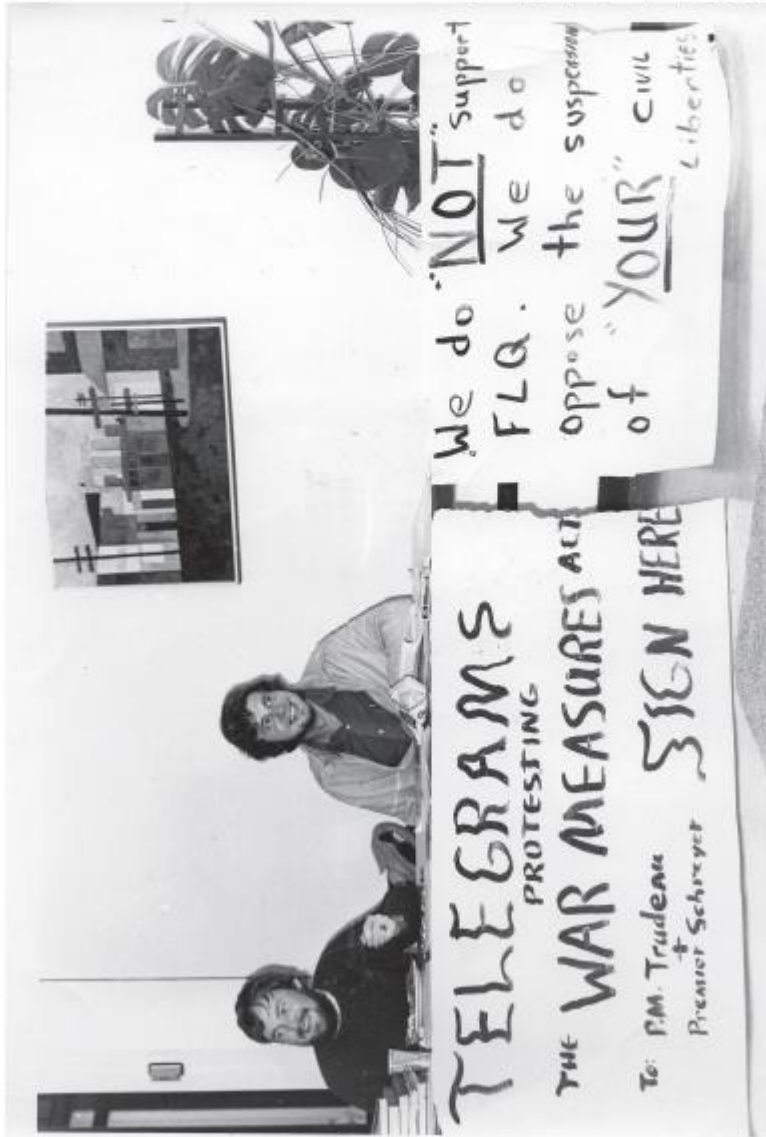 TELEGRAMS
PROTESTING
THE WAR MEASURES ACT
To: P.M. Trudeau
+
Premier Schreyer
SIGN HERE
We do "NOT" support
FLQ. We do
oppose the suspension
of "YOUR" civil
Liberties